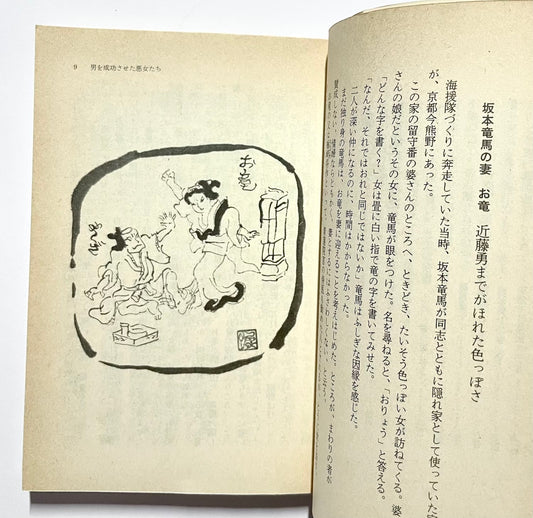 坂本竜馬の妻 お竜 近藤勇までがほれた色っぽさ
海援隊づくりに奔走していた当時、坂本竜馬が同志とともに隠れ家として使っていた
が、京都今熊野にあった。
この家の留守番の婆さんのところへ、ときどき、たいそう色っぽい女が訪ねてくる。婆
さんの娘だというその女に、竜馬が眼をつけた。名を尋ねると、「おりょう」と答える。
「どんな字を書く?」女は畳に白い指で竜の字を書いてみせた。
「なんだ、それではおれと同じではないか」竜馬はふしぎな因縁を感じた。
二人が深い仲になるのに、時間はかからなかった。
まだ独り身の竜馬は、お竜を妻に迎えることを考えはじめた。ところが、まわりの者が
賛成しない。情婦ならともかく、妻とするにはふさわしくない、と
9 男を成功させた悪女たち
お竜